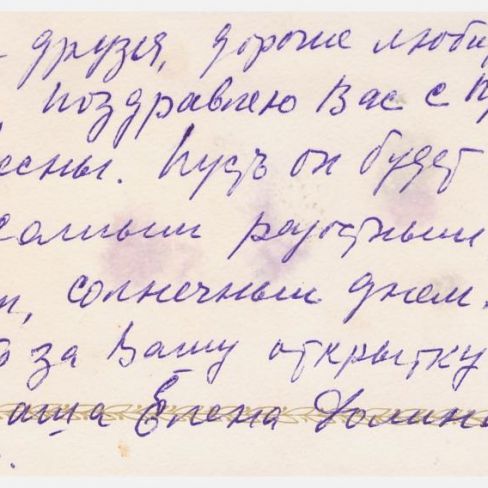 друзья, дорогие люби
, поздравляю Вас с пр
есны. Пусть он будет
самым радостным,
м, солнечным днем.
о за Вашу открытку
аша Елена Долина